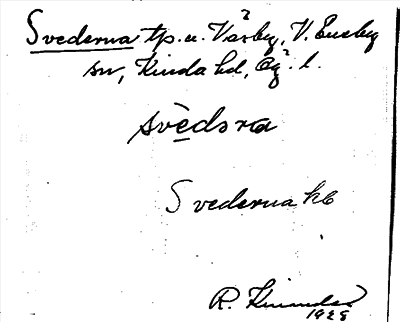 Svederna tp. u. Vårby, V. Eneby
sn, Kinda hd, Ög. l.
svèdəra
Svederna kb
R.
1928